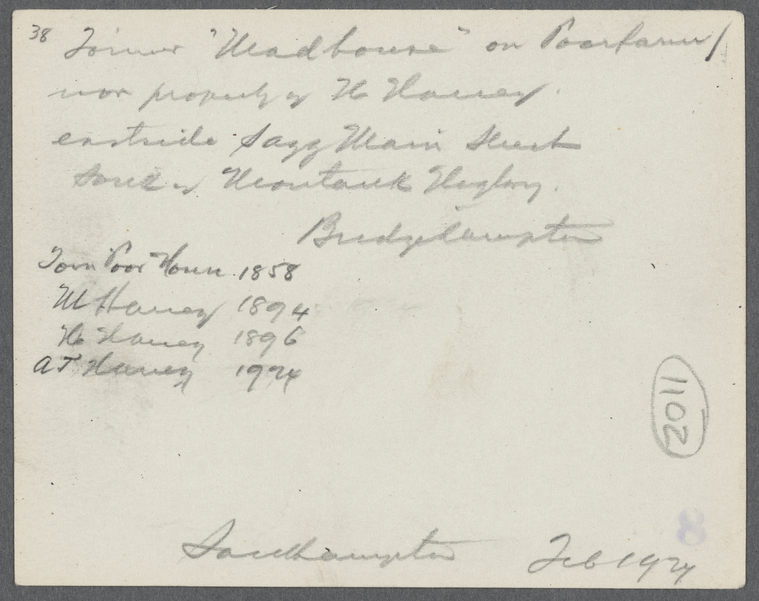 38 Former "Madhouse" on Poorfarm/
now property of H Haney.
eastside Sagg Main Street
South of Montauk Highway.
Bridgehampton
Town Poor House 1858
M Haney 1894
H Haney 1896
A T Haney 1924
1102
8
Southampton Feb 1924